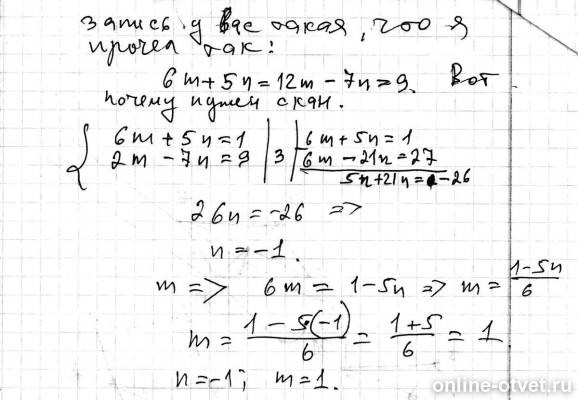 запись у вас такая, что я
прочел так:
6m+5n=12m-7n=9. Вот
почему нужен скан.
{ 6m+5n=1 | | 6m+5n=1
2m-7n=9 | 3 | 6m-21n=27
5n+21n=-26
26n=-26 =>
n=-1.
m => 6m=1-5n => m=(1-5n)/6
m=(1-5·(-1))/6=(1+5)/6=1.
n=-1; m=1.
online-otvet.ru